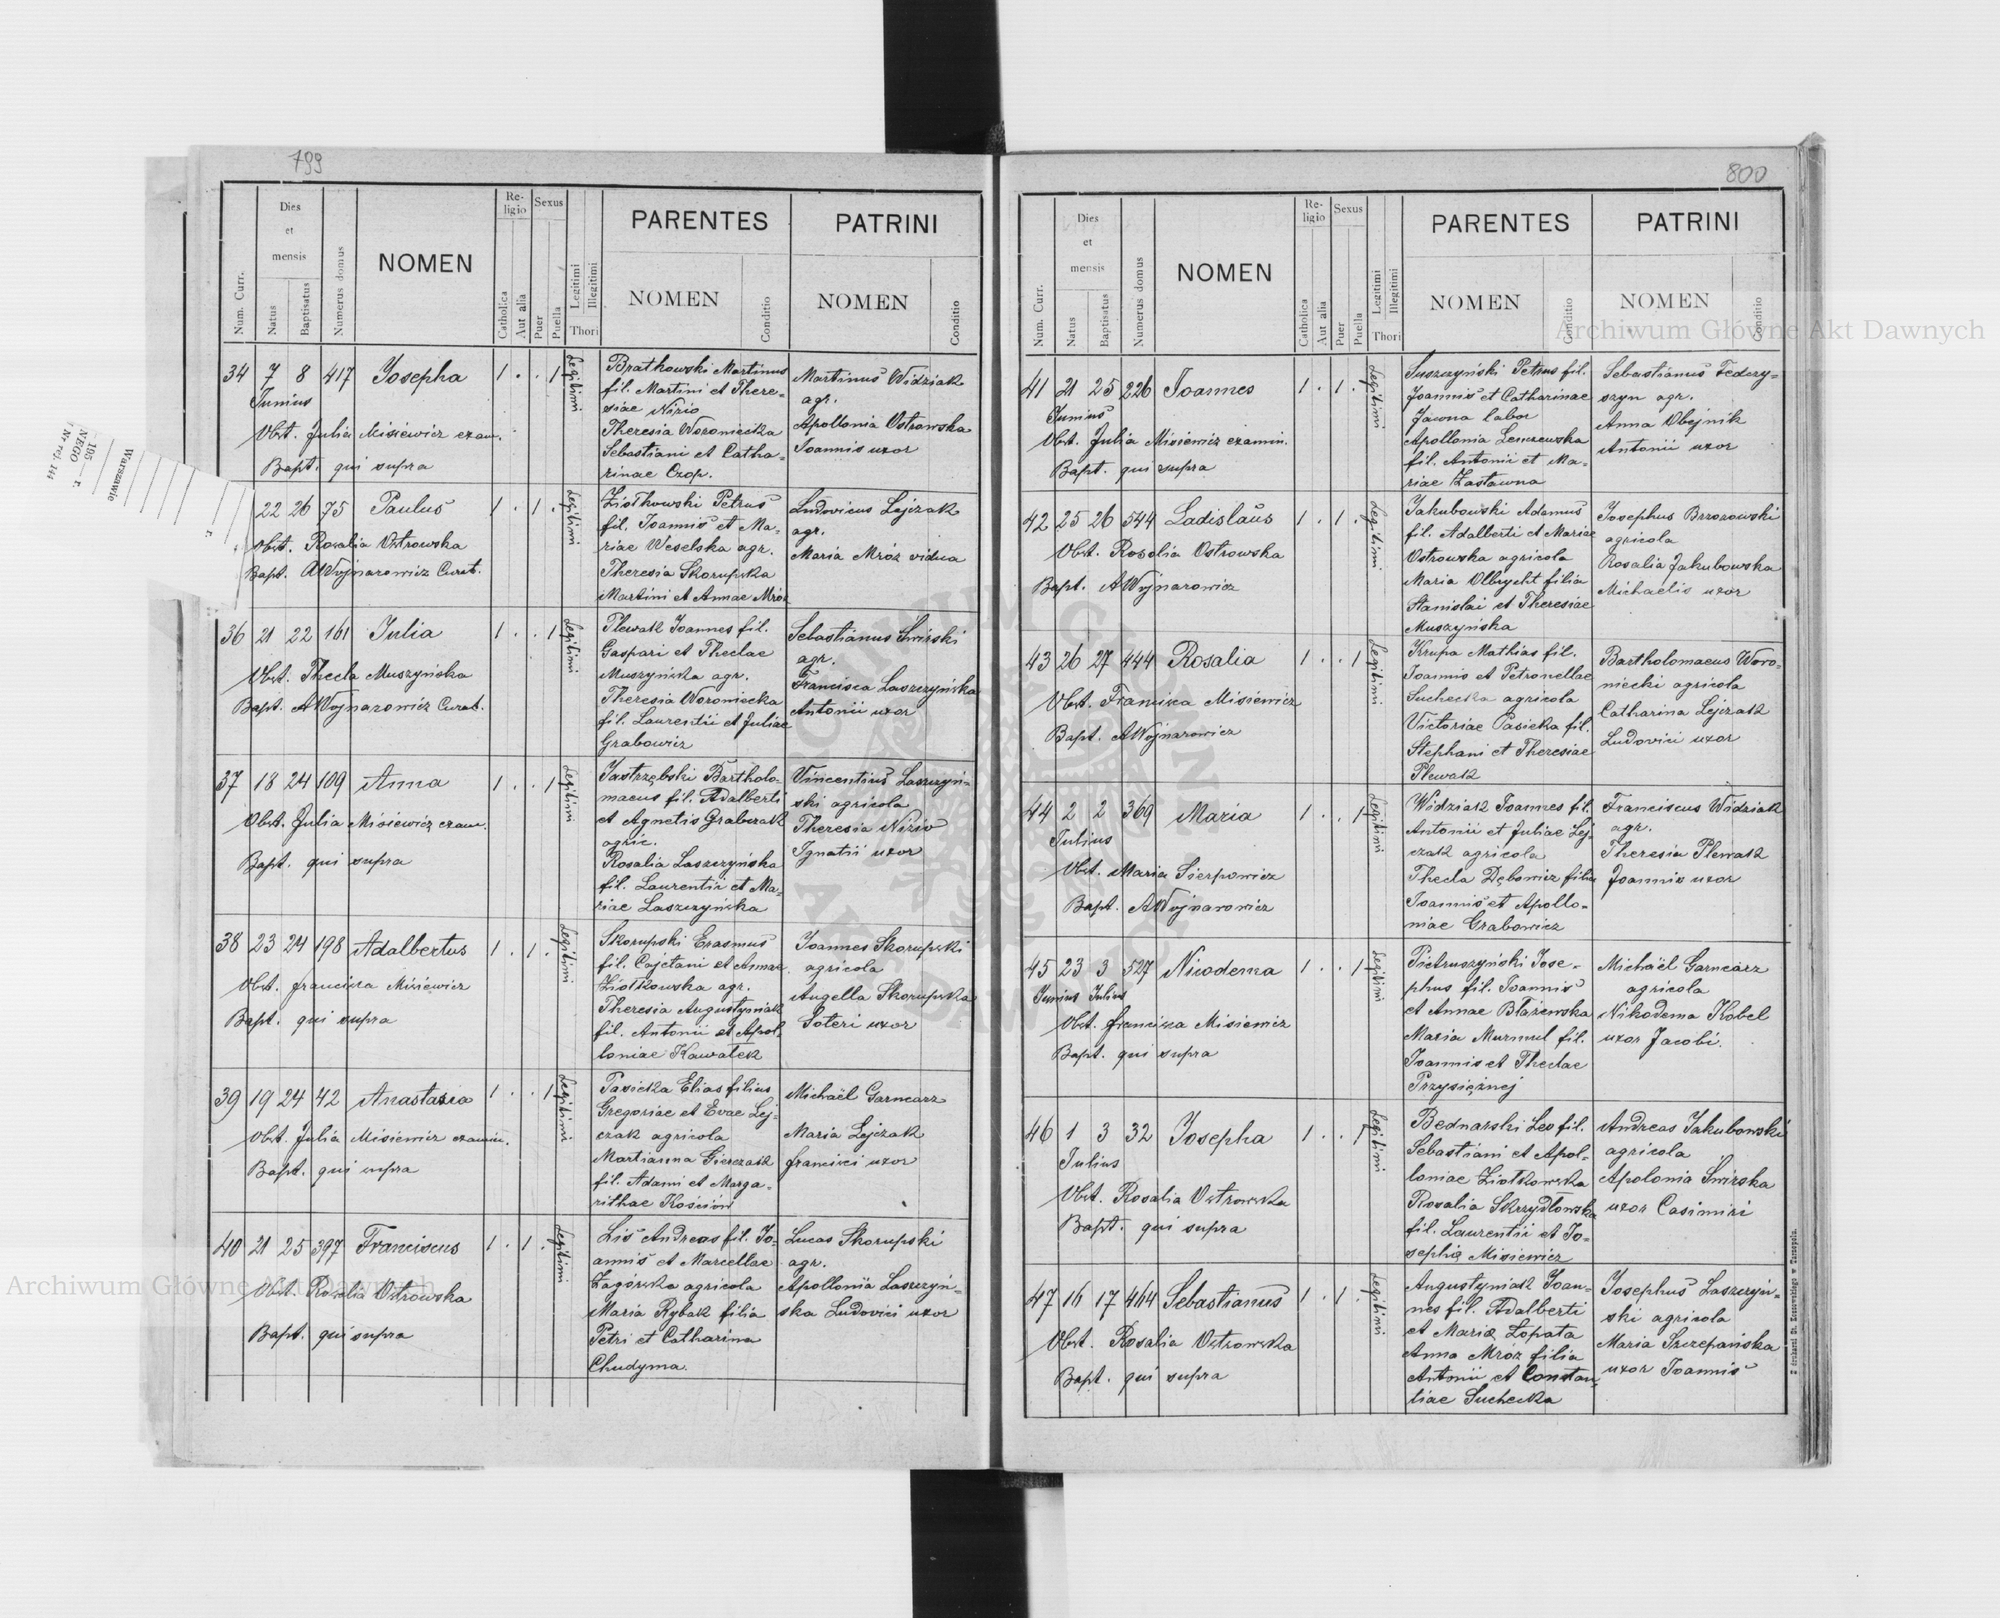 799
Dies
et
mensis
Num. Curr.
Natus
Baptisatus
Numerus domus
NOMEN
Re-
ligio
Catholica
Aut alia
Sexus
Puer
Puella
Legitimi
Illegitimi
Thori
PARENTES
NOMEN
Conditio
PATRINI
NOMEN
Conditio
34 7 8 417 Josepha 1 . . 1 Legitimi
Junius
Obst. Julia Misiewicz exam.
Bapt. qui supra
Bratkowski Martinus
fil. Martini et There-
siae Nizio
Theresia Woroniecka
Sebastiani et Catha-
rinae Czop.
Martinus Widziak
agr.
Apollonia Ostrowska
Joannis uxor
22 26 75 Paulus 1 . 1 . Legitimi
Obst. Rosalia Ostrowska
Bapt. AWojnarowicz Curat.
Ziołkowski Petrus
fil. Joannis et Ma-
riae Weselska agr.
Theresia Skorupska
Martini et Annae Mróz
Ludovicus Lejczak
agr.
Maria Mróz vidua
36 21 22 161 Julia 1 . . 1 Legitimi
Obst. Thecla Muszyńska
Bapt. AWojnarowicz Curat.
Plewak Joannes fil.
Gaspari et Theclae
Muszyńska agr.
Theresia Woroniecka
fil. Laurentii et Juliae
Grabowicz
Sebastianus Świrski
agr.
Francisca Laszczyńska
Antonii uxor
37 18 24 109 Anna 1 . . 1 Legitimi
Obst. Julia Misiewicz exam.
Bapt. qui supra
Jastrzębski Bartholo-
maeus fil. Adalberti
et Agnetis Grabczak
agric.
Rosalia Laszczyńska
fil. Laurentii et Ma-
riae Laszczyńska
Vincentius Laszczyń-
ski agricola
Theresia Nizio
Ignatii uxor
38 23 24 198 Adalbertus 1 . 1 . Legitimi
Obst. Francisca Misiewicz
Bapt. qui supra
Skorupski Erasmus
fil. Cajetani et Annae
Ziołkowska agr.
Theresia Augustyniak
fil. Antonii et Apol-
loniae Kawałek
Joannes Skorupski
agricola
Angella Skorupska
Soteri uxor
39 19 24 42 Anastasia 1 . . 1 Legitimi
Obst. Julia Misiewicz examin.
Bapt. qui supra
Pasieka Elias filius
Gregoriae et Evae Lej-
czak agricola
Martianna Gierczak
fil. Adami et Marga-
rithae Kościow
Michaël Garncarz
Maria Lejczak
Francisci uxor
40 21 25 397 Franciscus 1 . 1 . Legitimi
Obst. Rosalia Ostrowska
Bapt. qui supra
Lis Andreas fil. Jo-
annis et Marcellae
Zagórska agricola
Maria Rybak filia
Petri et Catharina
Chudyma.
Lucas Skorupski
agr.
Apollonia Laszczyń-
ska Ludovici uxor
195
NEGO
Warszawie
Nr rej. 144
800
Dies
et
mensis
Num. Curr.
Natus
Baptisatus
Numerus domus
NOMEN
Re-
ligio
Catholica
Aut alia
Sexus
Puer
Puella
Legitimi
Illegitimi
Thori
PARENTES
NOMEN
Conditio
PATRINI
NOMEN
Conditio
41 21 25 226 Joannes 1 . 1 . Legitimi
Junius
Obst. Julia Misiewicz examin.
Bapt. qui supra
Suszczyński Petrus fil.
Joannis et Catharinae
Jawna labor
Apollonia
fil. Antonii et Ma-
riae Zastawna
Sebastianus Federy-
szyn agr.
Anna Obejnik
Antonii uxor
42 25 26 544 Ladislaus 1 . 1 . Legitimi
Obst. Rosalia Ostrowska
Bapt. AWojnarowicz
Jakubowski Adamus
fil. Adalberti et Mariae
Ostrowska agricola
Maria Olbrycht filia
Stanislai et Theresiae
Muszyńska
Josephus Brzozowski
agricola
Rosalia Jakubowska
Michaelis uxor
43 26 27 444 Rosalia 1 . . 1 Legitimi
Obst. Francisca Misiewicz
Bapt. AWojnarowicz
Krupa Mathias fil.
Joannis et Petronellae
Suchecka agricola
Victoriae Pasieka fil.
Stephani et Theresiae
Plewak
Bartholomaeus Woro-
niecki agricola
Catharina Lejczak
Ludovici uxor
44 2 2 369 Maria 1 . . 1 Legitimi
Julius
Obst. Maria Sierpowicz
Bapt. AWojnarowicz
Widziak Joannes fil.
Antonii et Juliae Lej-
czak agricola
Thecla Dębowicz filia
Joannis et Apollo-
niae Grabowicz
Franciscus Widziak
agr.
Theresia Plewak
Joannis uxor
45 23 3 527 Nicodema 1 . . 1 Legitimi
Junius Julius
Obst. Francisca Misiewicz
Bapt. qui supra
Pietruszyński Jose-
phus fil. Joannis
et Annae Błażewska
Maria Murmul fil.
Joannis et Theclae
Przysiężnej
Michaël Garncarz
agricola
Nikodema Kobel
uxor Jacobi.
46 1 3 32 Josepha 1 . . 1 Legitimi
Julius
Obst. Rosalia Ostrowska
Bapt. qui supra
Bednarski Leo fil.
Sebastiani et Apol-
loniae Ziołkowska
Rosalia Skrzydłowska
fil. Laurentii et Jo-
sephię Misiewicz
Andreas Jakubowski
agricola
Apolonia Świrska
uxor Casimiri
47 16 17 464 Sebastianus 1 . 1 . Legitimi
Obst. Rosalia Ostrowska
Bapt. qui supra
Augustyniak Joan-
nes fil. Adalberti
et Marię Łopata
Anna Mróz filia
Antonii et Constan-
tiae Suchecka
Josephus Laszczyń-
ski agricola
Maria Szczepańska
uxor Joannis
Z drukarni St. Kossowskiego w Tarnopolu.
Archiwum Główne Akt Dawnych
Archiwum Główne Akt Dawnych
ARCHIWUM GŁÓWNE AKT DAWNYCH